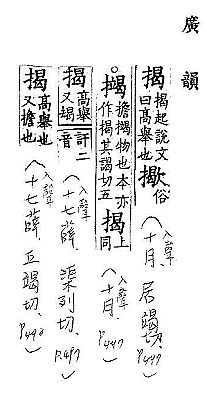 廣韻
揭揭起說文曰高舉也㪉俗(入聲十月,居竭切,P.477)
。㩐擔㩐物也本亦作揭其謁切五揭上同(入聲十月,P.477)
揭高舉又音竭計二(入聲十七薛,渠列切,P.497)
揭高舉也又擔也(入聲十七薛,丘竭切,P.498)